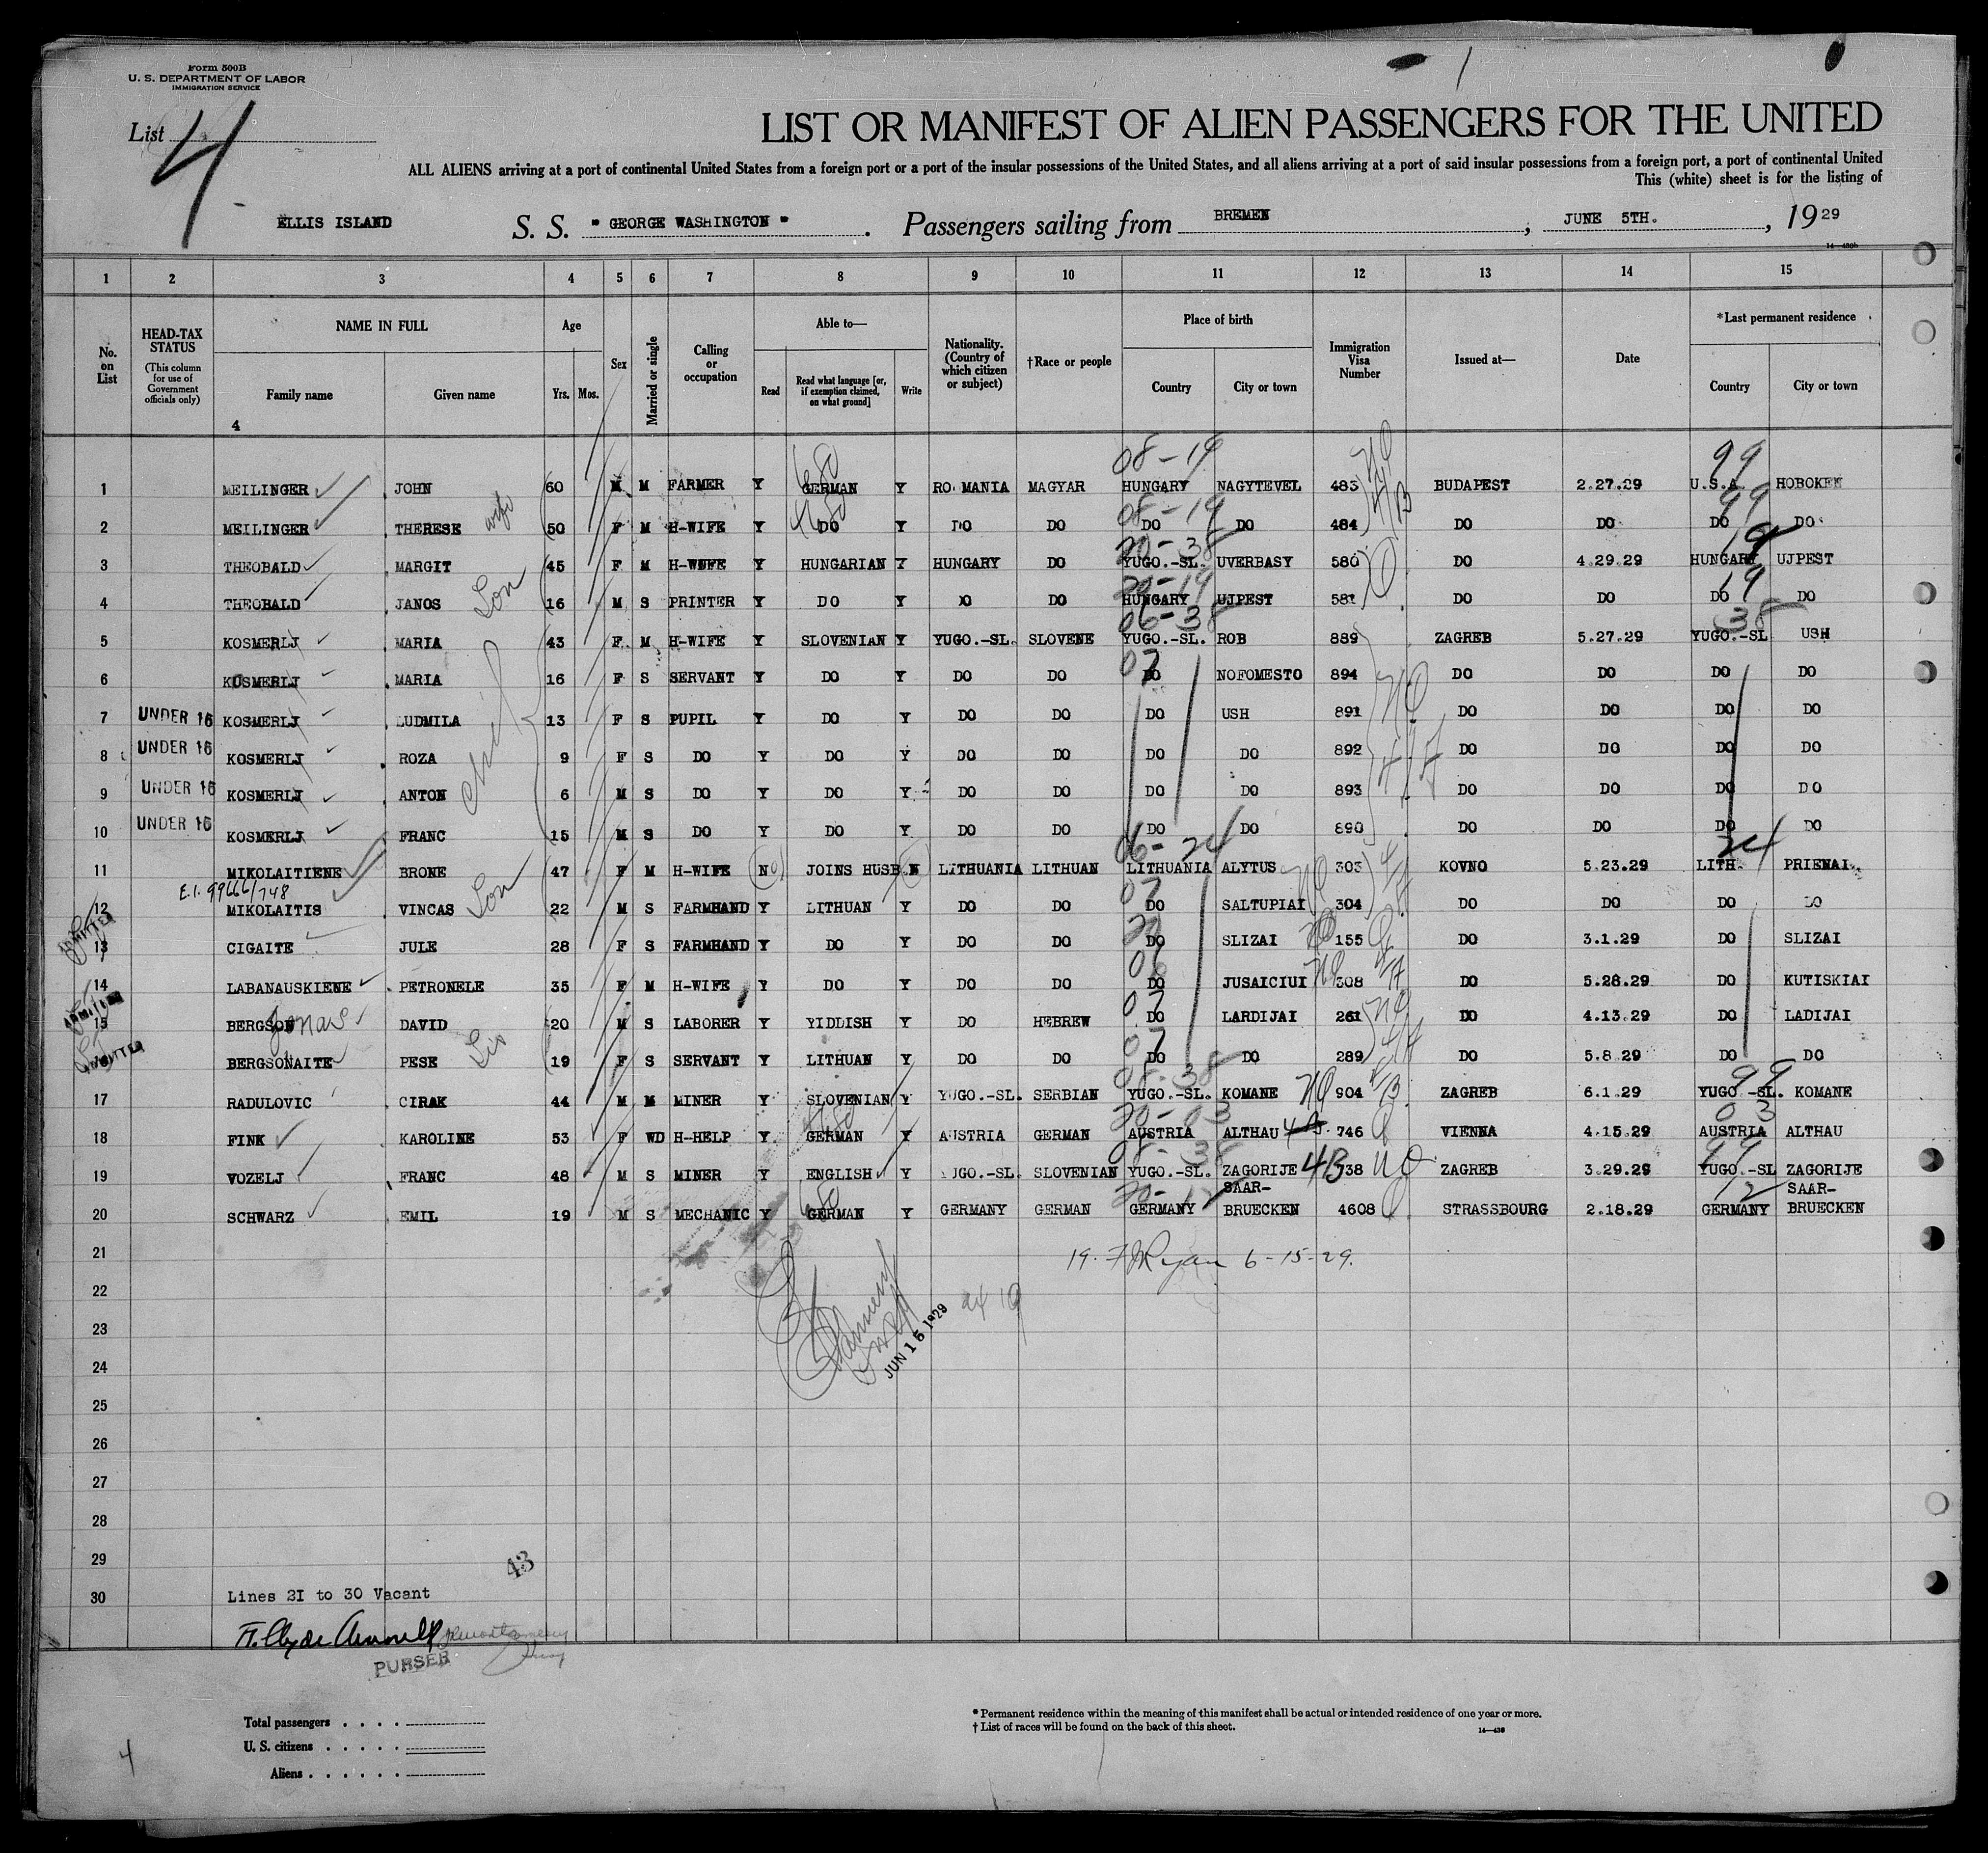 Form 500B
U. S. DEPARTMENT OF LABOR
IMMIGRATION SERVICE
List 4
LIST OR MANIFEST OF ALIEN PASSENGERS FOR THE UNITED
ALL ALIENS arriving at a port of continental United States from a foreign port or a port of the insular possessions of the United States, and all aliens arriving at a port of said insular possessions from a foreign port, a port of continental United
This (white) sheet is for the listing of
ELLIS ISLAND S. S. "GEORGE WASHINGTON" . Passengers sailing from BREMEN , JUNE 5TH. , 1929
1 2 3 4 5 6 7 8 9 10 11 12 13 14 15
No. on List
HEAD-TAX STATUS (This column for use of Government officials only)
NAME IN FULL Family name Given name
Age Yrs. Mos.
Sex
Married or single
Calling or occupation
Able to— Read Read what language [or, if exemption claimed, on what ground] Write
Nationality. (Country of which citizen or subject)
†Race or people
Place of birth Country City or town
Immigration Visa Number
Issued at—
Date
*Last permanent residence Country City or town
4
1 MEILINGER JOHN 60 M M FARMER Y GERMAN Y ROMANIA MAGYAR HUNGARY NAGYTEVEL 483 BUDAPEST 2.27.29 U.S.A. HOBOKEN
2 MEILINGER THERESE wife 50 F M H-WIFE Y DO Y DO DO DO DO 484 DO DO DO DO
3 THEOBALD MARGIT 45 F M H-WIFE Y HUNGARIAN Y HUNGARY DO YUGO.-SL. UVERBASY 580 DO 4.29.29 HUNGARY UJPEST
4 THEOBALD JANOS Son 16 M S PRINTER Y DO Y DO DO HUNGARY UJPEST 581 DO DO DO DO
5 KOSMERLJ MARIA 43 F M H-WIFE Y SLOVENIAN Y YUGO.-SL. SLOVENE YUGO.-SL. ROB 889 ZAGREB 5.27.29 YUGO.-SL USH
6 KOSMERLJ MARIA 16 F S SERVANT Y DO Y DO DO DO NOFOMESTO 894 DO DO DO DO
7 UNDER 16 KOSMERLJ LUDMILA 13 F S PUPIL Y DO Y DO DO DO USH 891 DO DO DO DO
8 UNDER 16 KOSMERLJ ROZA 9 F S DO Y DO Y DO DO DO DO 892 DO DO DO DO
9 UNDER 16 KOSMERLJ ANTON 6 M S DO Y DO Y DO DO DO DO 893 DO DO DO DO
10 UNDER 16 KOSMERLJ FRANC 15 M S DO Y DO Y DO DO DO DO 890 DO DO DO DO
11 MIKOLAITIENE BRONE 47 F M H-WIFE NO JOINS HUSB N LITHUANIA LITHUAN LITHUANIA ALYTUS 303 KOVNO 5.23.29 LITH. PRIENAI.
E.I. 99666/748
12 MIKOLAITIS VINCAS Son 22 M S FARMHAND Y LITHUAN Y DO DO DO SALTUPIAI 304 DO DO DO DO
13 ADMITTED CIGAITE JULE 28 F S FARMHAND Y DO Y DO DO DO SLIZAI 155 DO 3.1.29 DO SLIZAI
14 LABANAUSKIENE PETRONELE 35 F M H-WIFE Y DO Y DO DO DO JUSAICIUI 308 DO 5.28.29 DO KUTISKIAI
15 ADMITTED BERGSON Jonas DAVID 20 M S LABORER Y YIDDISH Y DO HEBREW DO LARDIJAI 261 DO 4.13.29 DO LADIJAI
16 ADMITTED BERGSONAITE PESE Sis 19 F S SERVANT Y LITHUAN Y DO DO DO DO 289 DO 5.8.29 DO DO
17 RADULOVIC CIRAK 44 M M MINER Y SLOVENIAN Y YUGO.-SL. SERBIAN YUGO.-SL. KOMANE 904 ZAGREB 6.1.29 YUGO.-SL. KOMANE
18 FINK KAROLINE 53 F WD H-HELP Y GERMAN Y AUSTRIA GERMAN AUSTRIA ALTHAU 746 VIENNA 4.15.29 AUSTRIA ALTHAU
19 VOZELJ FRANC 48 M S MINER Y ENGLISH Y YUGO.-SL. SLOVENIAN YUGO.-SL. ZAGORIJE 4B 738 ZAGREB 3.29.29 YUGO.-SL ZAGORIJE
20 SCHWARZ EMIL 19 M S MECHANIC Y GERMAN Y GERMANY GERMAN GERMANY SAAR-BRUECKEN 4608 STRASSBOURG 2.18.29 GERMANY SAAR-BRUECKEN
21 19. F J Ryan 6-15-29.
22
23 JUN 15 1929
24
25
26
27
28
29 43
30 Lines 21 to 30 Vacant
PURSER
Total passengers . . . .
U. S. citizens . . . . .
Aliens . . . . . .
* Permanent residence within the meaning of this manifest shall be actual or intended residence of one year or more.
† List of races will be found on the back of this sheet.
14—438
4